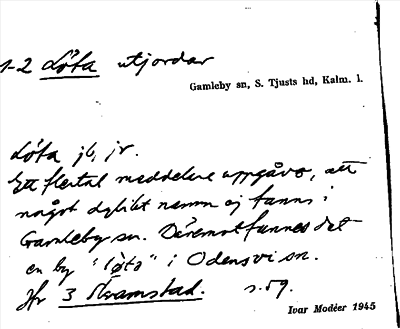 1-2 Löta utjordar
Gamleby sn, S. Tjusts hd, Kalm. l.
Löta jb, jr.
Ett flertal meddelare uppgåvo, att
något dylikt namn ej fanns i
Gamleby sn. Däremot fannes det
en by "löta" i Odensvi sn.
Jfr 3 Kvamstad. s. 59.
Ivar Modéer 1945